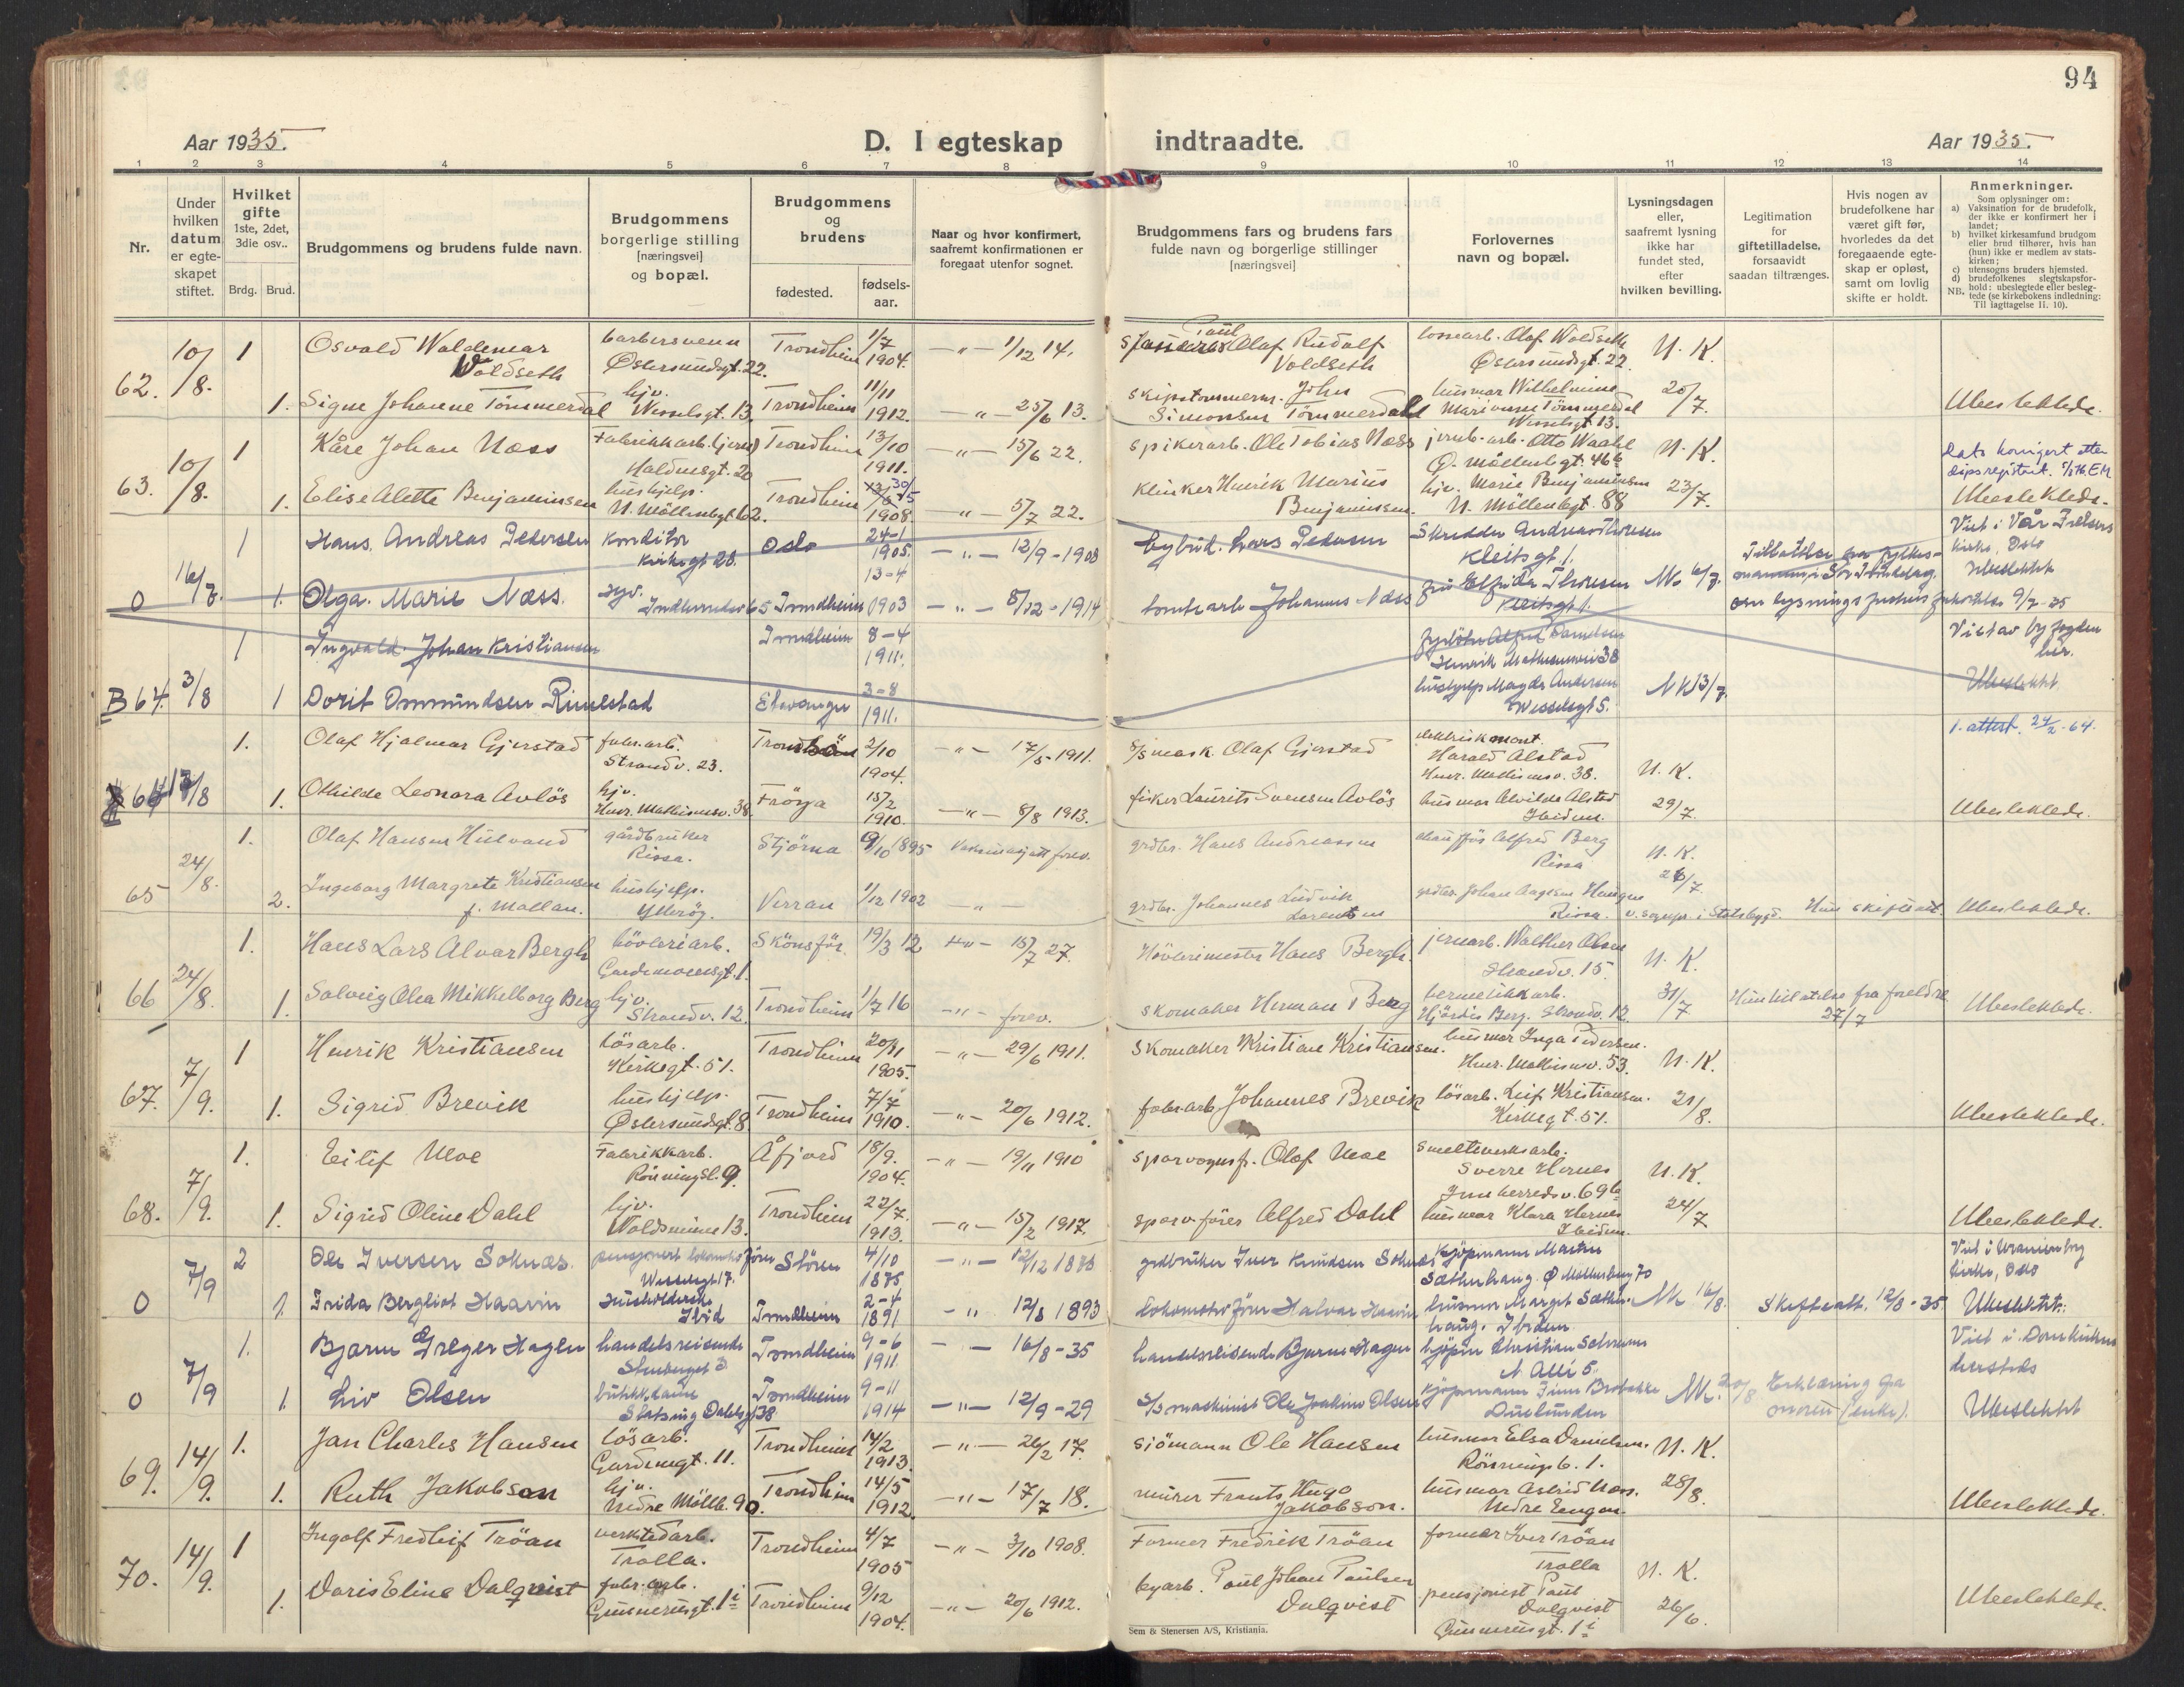 94
Aar 1935.
D. I egteskap indtraadte.
Aar 1935.
1 2 3 4 5 6 7 8 9 10 11 12 13 14
Nr.
Under hvilken datum er egteskapet stiftet.
Hvilket gifte 1ste, 2det, 3die osv..
Brdg. Brud.
Brudgommens og brudens fulde navn.
Brudgommens borgerlige stilling [næringsvei] og bopæl.
Brudgommens og brudens
fødested.
fødsels-aar.
Naar og hvor konfirmert, saafremt konfirmationen er foregaat utenfor sognet.
Brudgommens fars og brudens fars fulde navn og borgerlige stillinger [næringsvei]
Forlovernes navn og bopæl.
Lysningsdagen eller, saafremt lysning ikke har fundet sted, efter hvilken bevilling.
Legitimation for giftetilladelse, forsaavidt saadan tiltrænges.
Hvis nogen av brudefolkene har været gift før, hvorledes da det foregaaende egteskap er opløst, samt om lovlig skifte er holdt.
Anmerkninger.
Som oplysninger om:
a) Vaksination for de brudefolk, der ikke er konfirmert her i landet;
b) hvilket kirkesamfund brudgom eller brud tilhører, hvis han (hun) ikke er medlem av statskirken;
c) utensogns bruders hjemsted.
d) brudefolkenes slegtskapsforhold: ubeslegtede eller beslegtede (se kirkebokens indledning:
NB. Til iagttagelse II. 10).
62. 10/8. 1 Osvald Waldemar Voldseth barbersvenn Østersundsgt. 22. Trondheim 1/7 1904. —"— 1/12 14. Paul Olaf Rudolf Voldseth Olaf Voldseth Østersundsgt. 22 N. K.
1. Signe Johanne Tömmerdal hjv. Wesselsgt. 13. Trondheim 11/11 1912. —"— 25/6 13. John Simonsen Tömmerdal husmor Wilhelmine Marianne Tömmerdal Wesselsgt 13. 20/7. Ubeslektede.
63. 10/8. 1 Kåre Johan Næss Fabrikkarb. Trondheim 13/10 1911. —"— 15/6 22. spikerarb. Ole Tobias Næss jernb. arb. Otto Waahl Ø. Möllenbgt. 46b N. K.
1. Elise Alette Benjaminsen hushjelp. N. Möllenbgt. 62. Trondheim 30/5 1908. —"— 5/7 22. Klinker Henrik Marius Benjaminsen. hjv. Marie Benjaminsen N. Möllenbgt. 88 23/7. Ubeslektede.
1 Hans Andreas Pedersen Konditor Kirkegt 28. Oslo 24-1 1905 —"— 12/9-1908 Lars Pedersen Skredder Andreas Thoresen Kleitsgt 1. Viet i Vår Frelsers kirke, Oslo Ubeslektet
0 16/7. 1. Olga Marie Næss. Hjv. 65 Trondheim 13-4 1903 —"— 8/12-1914 Johannes Næss fru Elfrida Thoresen Kleitsgt 1. NK 6/7.
1 Ingvald Johan Kristiansen Trondheim 8-4 1911. Alfred Danielsen Henrik Mathisensvei 38 Viet av byfogden her.
B 64. 3/8 1 Dorit Ommundsen Rimestad 3-8 1911. hushjelp Magda Andersen Wesselsgt 5. NK 13/7. Ubeslektet
1. attest. 24/2-64.
64 1. Olaf Hjalmar Gjerstad fabr. arb. Strandv. 23. 2/10 1904. —"— 17/5-1911. Olaf Gjerstad elektrisk mont. Harald Alstad Henr. Mathisensv. 38. N. K.
1. Othilde Leonora Avlös hjv. Henr. Mathisensv. 38. Fröya 15/2 1910. —"— 8/8 1913. fisker Laurits Svensen Avlös husmor Alvilde Alstad Ibidem. 29/7. Ubeslektede.
65 24/8. 1. Olaf Hansen Hülvand gårdbruker Rissa. Stjörna 9/10 1895 Vaksinasjatt. forev. grdbr. Hans Andreassen Alfred Berg Rissa N. K.
2. Ingeborg Margrete Kristiansen f. Mollan. hushjelp. Ytteröy. Verran 1/12 1902 —"— grdbr. Johannes Ludvik Lorentsen Rissa. 26/7. Hun skifteatt. Ubeslektede.
66 24/8. 1. Hans Lars Alvar Bergh hövleriarb. Gardemoensgt. 1. Skönsför. 19/3 12 —"— 15/7 27. Hövlerimester Hans Bergh. jernarb. Walther Olsen Strandv. 15. N. K.
1. Solveig Olea Mikkelborg Berg hjv. Strandv. 12. Trondheim 1/7 16 —"— forev. skomaker Herman Berg hermetikkarb. Hjördis Berg. Strandv. 12. 31/7 Hun tillatelse fra foreldre 27/7 Ubeslektede.
67. 7/9. 1 Henrik Kristiansen lösarb. Kirkegt. 51. Trondheim 20/11 1905. —"— 29/6 1911. skomaker Kristian Kristiansen. husmor Inga Pedersen. Henr. Mathisensv. 53. N. K.
1. Sigrid Brevik hushjelp. Østersundsgt. 8. Trondheim 7/7 1910. —"— 20/6 1912. fabr. arb. Johannes Brevik lösarb. Leif Kristiansen. Kirkegt. 51. 21/8. Ubeslektede.
68. 7/9. 1. Eilif Moe Fabrikkarb. Rönningsl. 9. Åfjord 18/9. 1904. —"— 19/11 1910 sporvognsf. Olaf Moe smelteverksarb. Sverre Hernes Innherredsv. 69b N. K.
1. Sigrid Oline Dahl hjv. Voldsminne 13. Trondheim 22/7. 1913. —"— 15/2 1917. sporv. förer Alfred Dahl husmor Klara Hernes Ibidem. 24/7 Ubeslektede.
0 7/9 2 Ole Iversen Soknæs. pensjonert lokomotivförer Wesselsgt 17. Stören 4/10 1875 —"— grdbruker Iver Knudsen Soknæs Kjöpmann Martin Sætherhaug. Ø Möllenberg 70 Viet i Uranienborg kirke, Oslo
1. Frida Bergliot Haarin Husholderske Ibid Trondheim 2-4 1891 —"— 12/8 1893 lokomotivförer Halvar Haarin husmor Margit Sætherhaug. Ibidem NK 16/8. Skifteatt. 12/8-35 Ubeslektet.
0 7/9 1. Bjarne Greger Hagen handelsreisende Trondheim 9-6 1911 — 16/8-35 handelsreisende Bjarne Hagen Christian N Allé 5. Viet i Domkirken
1. Liv Olsen butikkdame Statsing Dahlsgt 38 Trondheim 9-11 1914 —"— 12/9-29 S/S maskinist Ole Joakim Olsen Kjöpmann Duelunden NK. 20/8 Erklæring fra moren (enke). Ubeslektet
69. 14/9. 1. Jan Charles Hansen lösarb. Gardemgt. 11. Trondheim 14/2 1913. —"— 26/2 17. sjömann Ole Hansen husmor Elsa Danielsen. Rönningsb. 1. N. K.
1. Ruth Jakobsen hjv. Nedre Möllb. 90. Trondheim 14/5 1912. —"— 17/7 18. murer Frants Hugo Jakobson. husmor Astrid Moss. Nedre Eengen. 28/8. Ubeslektede.
70. 14/9. 1 Ingolf Fredleif Tröan verkstedarb. Trolla. Trondheim 4/7 1905 —"— 3/10 1908. Former Fredrik Tröan former Iver Tröan Trolla N. K.
1. Doris Eline Dalqvist fabr. arb. Gunnerusgt. 1i Trondheim 9/12 1904. —"— 20/6 1912. byarb. Paul Johan Paulsen Dalqvist pensjonist Paul Dalqvist Gunnerusgt. 1i 26/6. Ubeslektede.
Sem & Stenersen A/S, Kristiania.